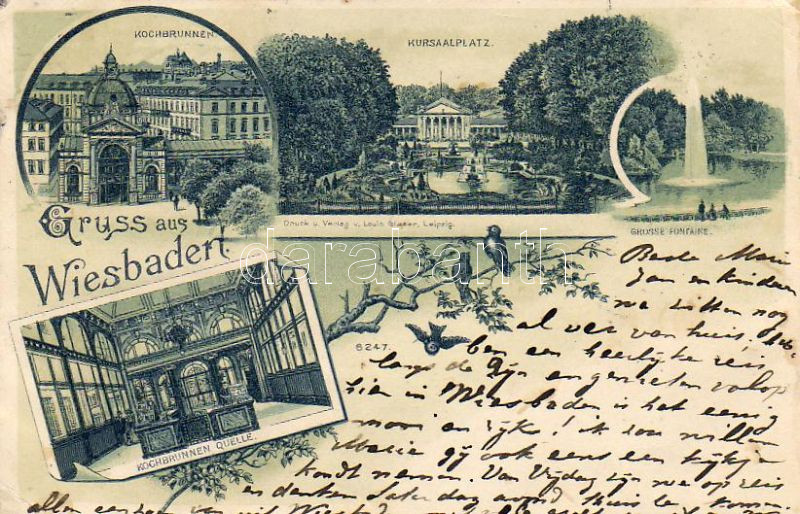 KOCHBRUNNEN
KURSAALPLATZ.
GROSSE FONTAINE.
Druck u. Verlag v. Louis Glaser, Leipzig.
Gruss aus
Wiesbaden
darabanth
6247.
KOCHBRUNNEN QUELLE.
Beste Marie
Jan en kinderen
we zitten nog
al ver van huis.
ben een heerlijke reis
langs de Rijn en genieten volop
hier in Wiesbaden is het eenig
mooi en rijk! Ik zou willen
Marie gij ook eens een kijkje
kondt nemen. Van Vrijdag zijn we op reis
en denken Saterdag avond thuis te komen.
allen een van uit Wiesbad